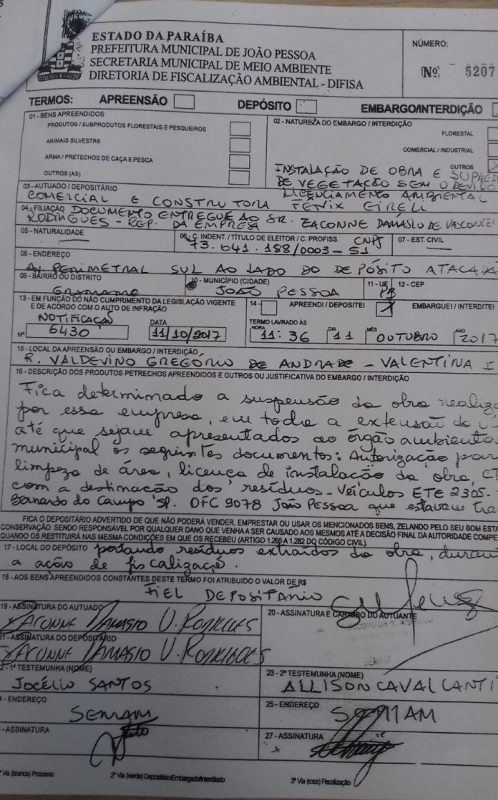 ESTADO DA PARAÍBA
PREFEITURA MUNICIPAL DE JOÃO PESSOA
SECRETARIA MUNICIPAL DE MEIO AMBIENTE
DIRETORIA DE FISCALIZAÇÃO AMBIENTAL - DIFISA
NÚMERO:
Nº 5207
TERMOS: APREENSÃO DEPÓSITO EMBARGO/INTERDIÇÃO
01 - BENS APREENDIDOS
PRODUTOS / SUBPRODUTOS FLORESTAIS E PESQUEIROS
ANIMAIS SILVESTRE
ARMA / PRETECHOS DE CAÇA E PESCA
OUTROS (AS)
02 - NATUREZA DO EMBARGO / INTERDIÇÃO
FLORESTAL
COMERCIAL / INDUSTRIAL
OUTROS
INSTALAÇÃO DE OBRA E
DE VEGETAÇÃO SEM O DEVIDO
LICENCIAMENTO AMBIENTAL
03 - AUTUADO / DEPOSITÁRIO
COMERCIAL E CONSTRUTORA FENIX EIRELI
04 - FILIAÇÃO DOCUMENTO ENTREGUE AO SR. ZACONNE DAMÁSIO DE
RODRIGUES - REP. DA EMPRESA
05 - NATURALIDADE
06 - C. INDENT / TÍTULO DE ELEITOR / C. PROFISS. CNPJ
73.641.188/0003-51
07 - EST. CIVIL
08 - ENDEREÇO
AV PERIMETRAL SUL AO LADO DO DEPÓSITO
09 - BAIRRO OU DISTRITO
GRAMAME
10 - MUNICÍPIO (CIDADE)
JOÃO PESSOA
11 - UF
PB
12 - CEP
13 - EM FUNÇÃO DO NÃO CUMPRIMENTO DA LEGISLAÇÃO VIGENTE
E DE ACORDO COM O AUTO DE INFRAÇÃO
14 - APREENDI / DEPOSITEI EMBARGUEI / INTERDITEI
NOTIFICAÇÃO
Nº 6430
DATA
11/10/2017
TERMO LAVRADO ÀS
HORA 11:36 DIA 11 MÊS OUTUBRO ANO 2017
15 - LOCAL DA APREENSÃO OU EMBARGO / INTERDIÇÃO
R. VALDEVINO GREGÓRIO DE ANDRADE - VALENTINA I
16 - DESCRIÇÃO DOS PRODUTOS PETRECHOS APREENDIDOS E OUTROS OU JUSTIFICATIVA DO EMBARGO / INTERDIÇÃO
Fica determinado a suspensão da obra
por essa empresa, em toda a extensão da
até que sejam apresentados ao órgão ambiental
municipal os seguintes documentos: Autorização para
limpeza de área, licença de instalação da obra,
com a destinação dos resíduos - Veículos ETE 2305 -
Bernardo do Campo SP. OFC 9078 João Pessoa que estavam
FICA O DEPOSITÁRIO ADVERTIDO DE QUE NÃO PODERÁ VENDER, EMPRESTAR OU USAR OS MENCIONADOS BENS, ZELANDO PELO SEU BOM
CONSERVAÇÃO. SENDO RESPONSÁVEL POR QUALQUER DANO QUE VENHA A SER CAUSADO AOS MESMOS ATÉ A DECISÃO FINAL DA AUTORIDADE
QUANDO OS RESTITUIRÁ NAS MESMA CONDIÇÕES EM QUE OS RECEBEU (ARTIGO 1.265 A 1.282 DO CÓDIGO CIVIL)
17 - LOCAL DO DEPÓSITO portando resíduos extraídos da obra,
a ação de fiscalização.
18 - AOS BENS APREENDIDOS CONSTANTES DESTE TERMO FOI ATRIBUIDO O VALOR DE R$
FIEL DEPOSITARIO
19 - ASSINATURA DO AUTUADO
ZACONNE DAMASIO V. RODRIGUES
20 - ASSINATURA E CARIMBO DO AUTUANTE
21 - ASSINATURA DO DEPOSITÁRIO
ZACONNE DAMASIO V. RODRIGUES
1ª TESTEMUNHA (NOME)
JOCÉLIO SANTOS
23 - 2ª TESTEMUNHA (NOME)
ALLISON CAVALCANTI
ENDEREÇO
SEMAM
25 - ENDEREÇO
SEMAM
ASSINATURA
27 - ASSINATURA
1ª Via (branca) Processo 2ª Via (verde) Depositário/Embargado/Interditado 3ª Via (rosa) Fiscalização